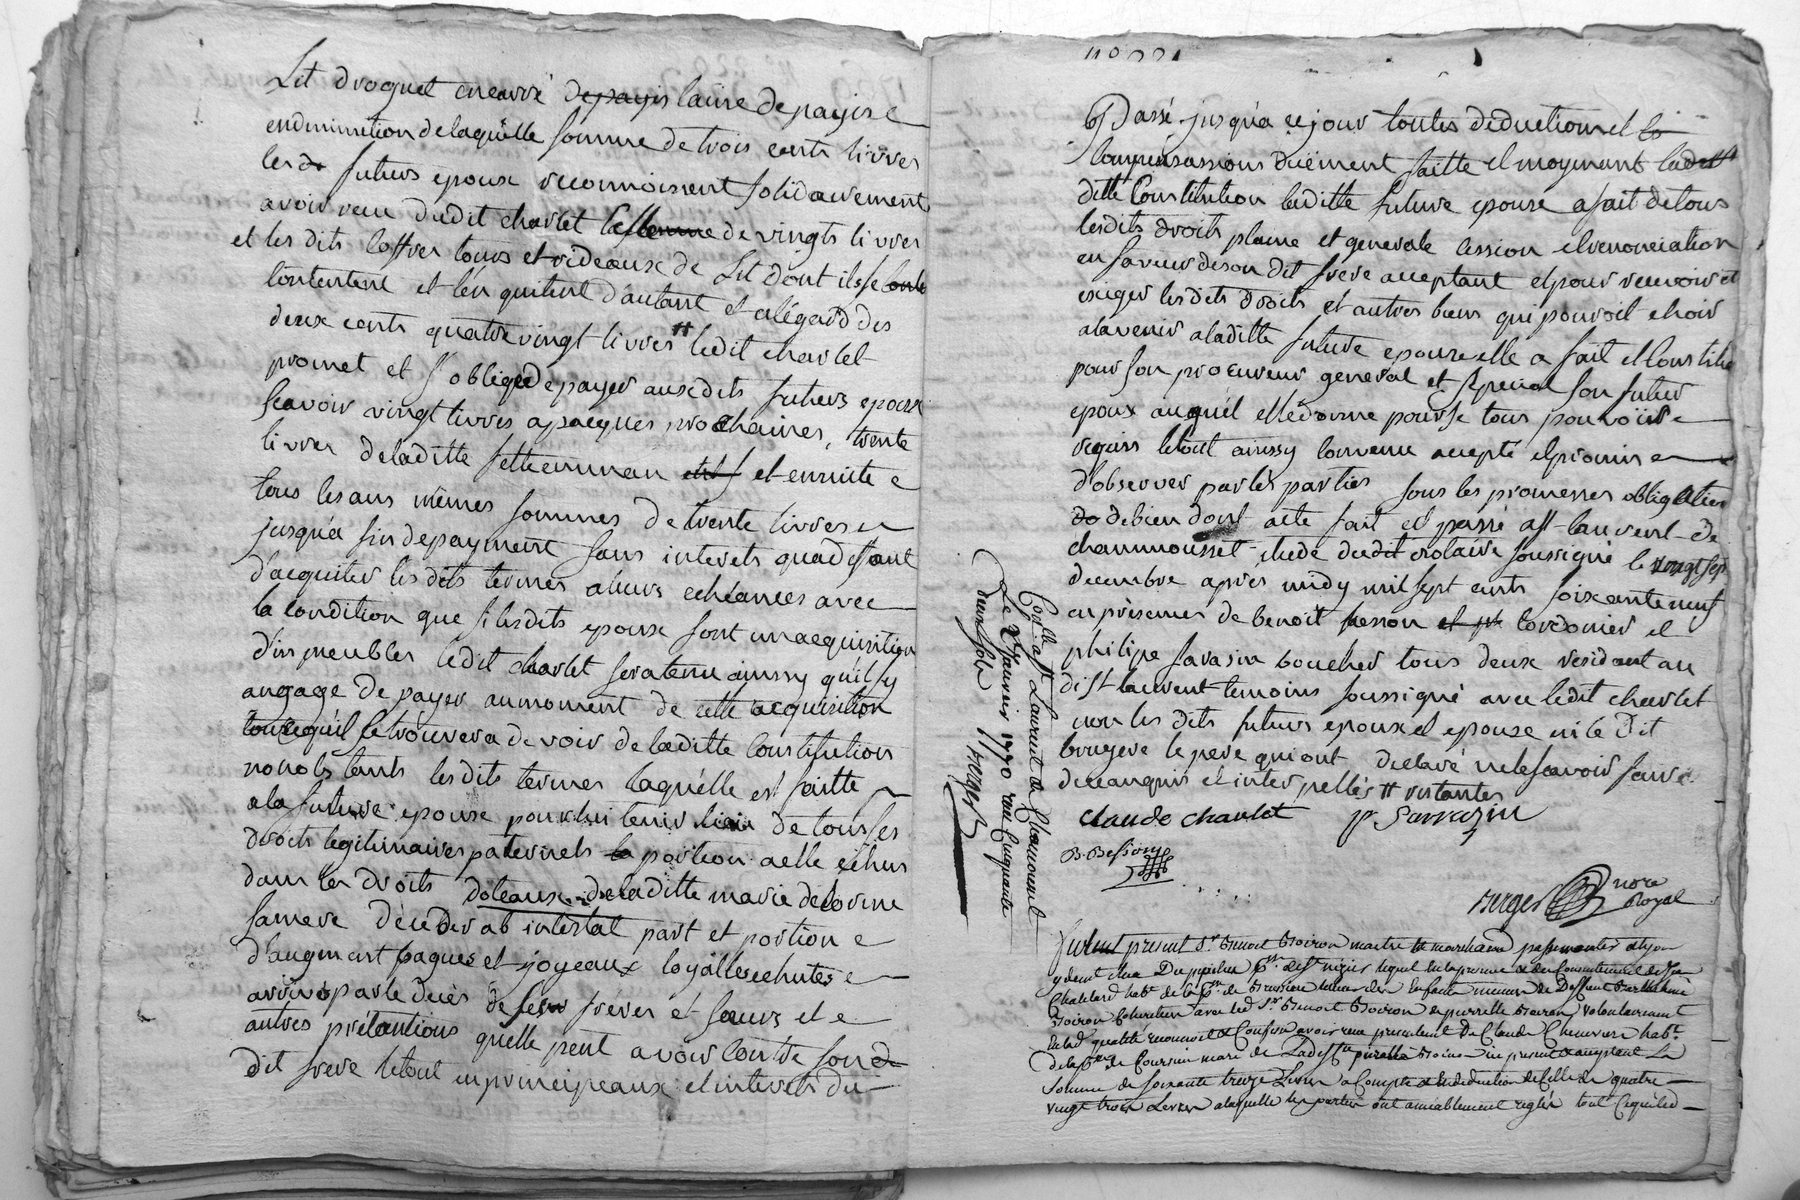 Lit droguet en carré depayis laine de payis e
endiminution de laquelle somme de trois cents livres
les d futurs epoux reconnoissent solidairement
avoir reçu dudit charlet la somme de vingts livres
et les dits coffres tours et rideaux de Lit dont ils se conte
contentent et l'en quitent d'autant et a l'égard des
deux cents quatre vingt livres ledit charlet
promet et s'oblige de payer auxdits futurs epoux
scavoir vingt livres a pacques prochaines, trente
livres de laditte fette en un an et ensuitte e
tous les ans mêmes sommes de trente livres
jusqu'a fin de payment sans interets qu'a deffaut
d'acquiter lesdits termes a leurs echéances avec
la condition que si lesdits epoux font un acquisition
d'inmeubles ledit charlet sera tenu ainssy qu'il sy
angage de payer au moment de cette acquisition
tout ce qu'il se trouvera devoir de laditte Constitution
nonobstants lesdits termes laquelle est faitte
a la future epouse pour lui tenir lieu de tous ses
droits legitimaires paternels la portion a elle echus
dans les droits doteaux de laditte marie delorme
sa mere décedée ab intestat part et portion e
d'augment bagues et joyeaux loyalles echutes e
arrivé par le decés de ses frères et sœurs et e
autres prétantions qu'elle peut avoir contre son d
dit frere le tout en principeaux et interets du
Passé jusqu'a ce jour toutes deductions et co
compensassions duëment faitte et moyenant ladt
ditte Constitution laditte future epouse a fait de tous
lesdits droits plaine et generale cession et renonciation
en faveur de son dit frere acceptant et pour recevoir et
exiger les dits droits et autres biens qui pouroit echoir
a lavenir a laditte future epouse elle a fait et Constitue
pour son procureur general et special son futur
epoux auquel elle donne pour se tous pouvoirs
requis le tout ainssy convenu accepté et promis e
d'observer par les parties sous les promesses obligation
de bien dont acte fait et passé a st laurent de
chammousset etude dudit notaire soussigné le vingt sept
decembre aprés midy mil sept cents soixante neuf
en présences de benoit besson cordonier et
philipe sarasin boucher tous deux residant au
dit st laurent temoins soussigné avec ledit charlet
non les dits futurs epoux et epouse ni le dit
bruyere le pere qui ont declaré ne le scavoir faire
de ce enquis et interpellés
claude charlot p Sarrazin
B. Besson
Berger nore Royal
Conlle a st Laurent de Chamousset
Le 2 Janvier 1770 recu Cinquante
deux sols Berger
furent present Sr Benoit Boiron maitre marchand passementier a Lyon
Chatelard habt de la psse de Brussieu
Boiron avec led Sr Benoit Boiron et pierrette Boiron volontairement
avoir recu presentement de Claude habt
de la psse de Coursieu mari de Boiron present acceptant La
Somme de soixante treize Livres a Compte et En deduction de Celle de quatre
vingt trois Livres a laquelle les parties ont amiablement reglés tout Ce